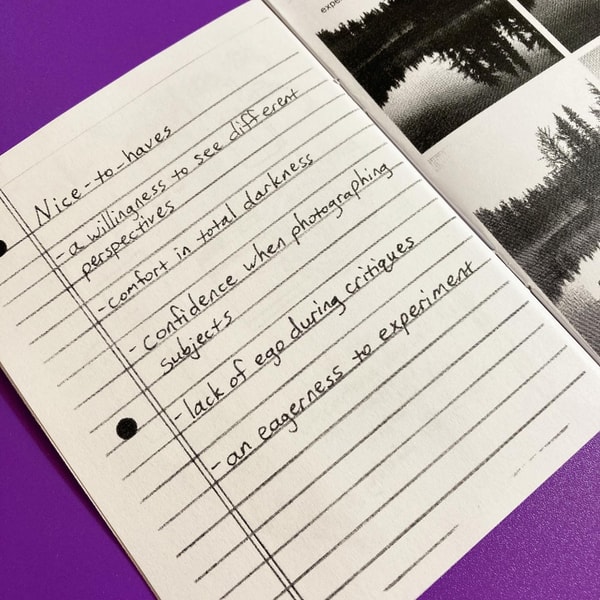 Nice-to-haves
- a willingness to see different
perspectives
- comfort in total darkness
- confidence when photographing
subjects
- lack of ego during critiques
- an eagerness to experiment